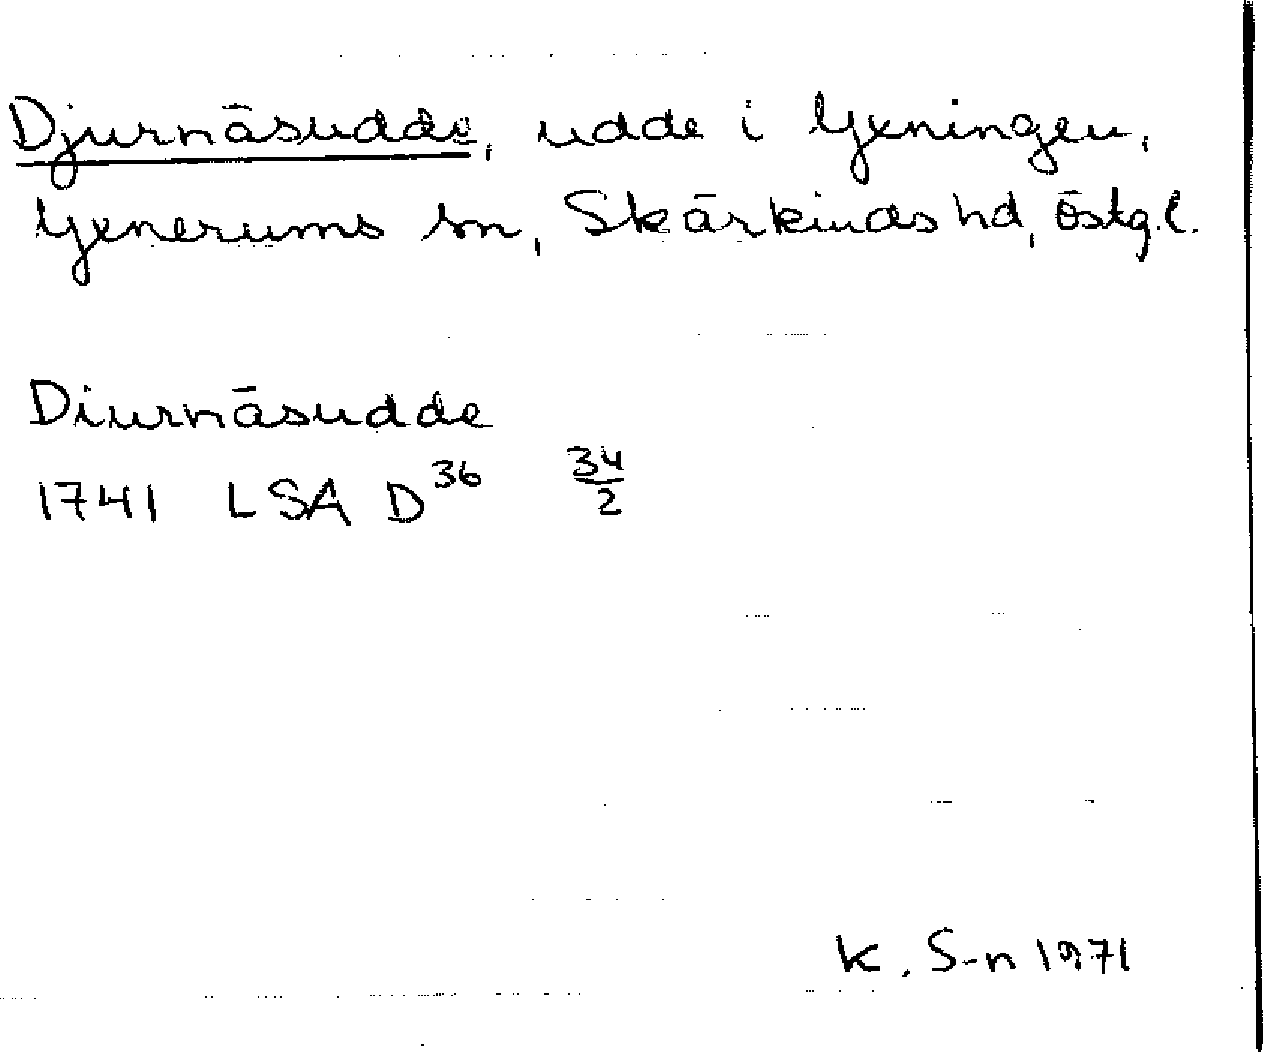 Djurnäsudde, udde i Yxningen,
Yxnerums sn, Skärkinds hd, Östg.l.
Diurnäsudde
1741 LSA D³⁶ 34/2
K. S-n 1971